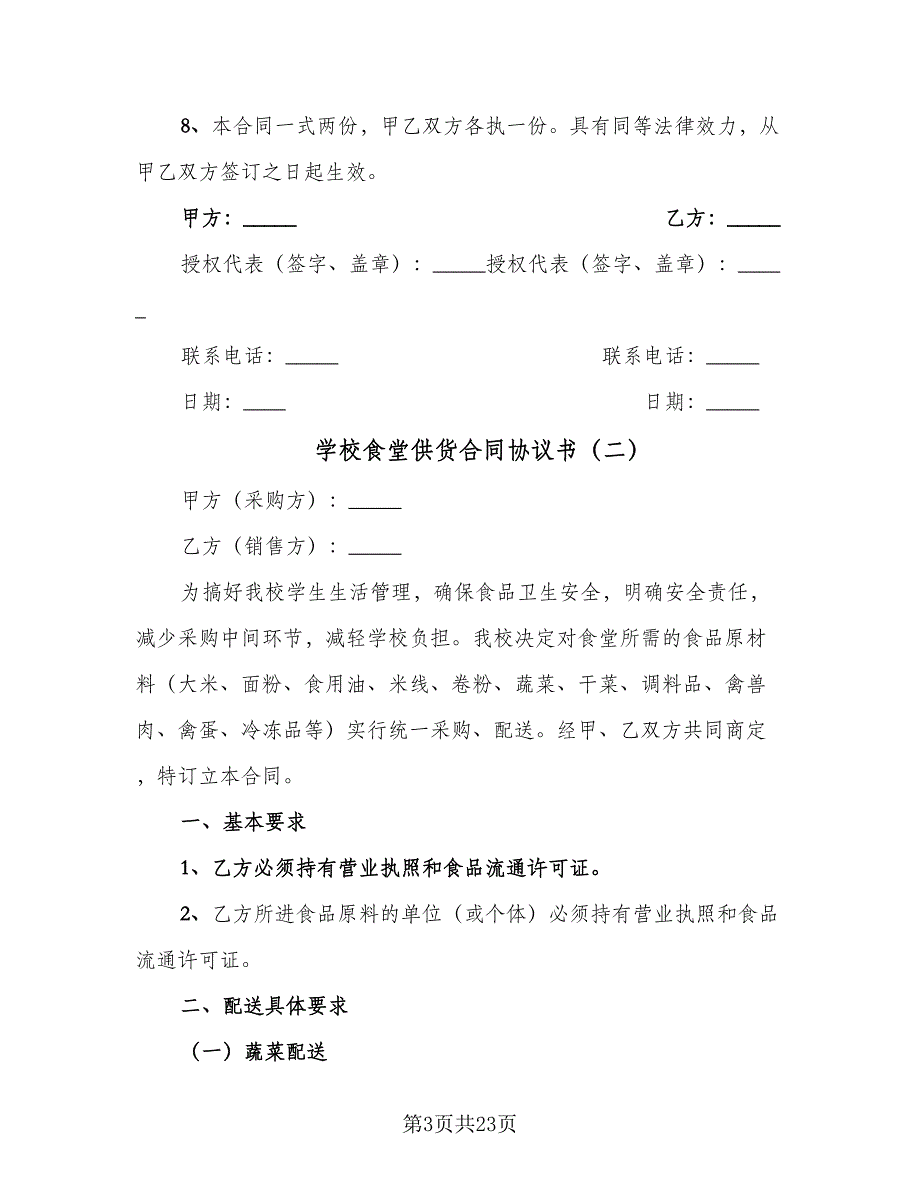 8、本合同一式两份，甲乙双方各执一份。具有同等法律效力，从
甲乙双方签订之日起生效。
甲方：_____ 乙方：_____
授权代表（签字、盖章）：_____授权代表（签字、盖章）：____
_
联系电话：_____ 联系电话：_____
日期：____ 日期：_____
学校食堂供货合同协议书（二）
甲方（采购方）：_____
乙方（销售方）：_____
为搞好我校学生生活管理，确保食品卫生安全，明确安全责任，
减少采购中间环节，减轻学校负担。我校决定对食堂所需的食品原材
料（大米、面粉、食用油、米线、卷粉、蔬菜、干菜、调料品、禽兽
肉、禽蛋、冷冻品等）实行统一采购、配送。经甲、乙双方共同商定
，特订立本合同。
一、基本要求
1、乙方必须持有营业执照和食品流通许可证。
2、乙方所进食品原料的单位（或个体）必须持有营业执照和食品
流通许可证。
二、配送具体要求
（一）蔬菜配送
第3页共23页